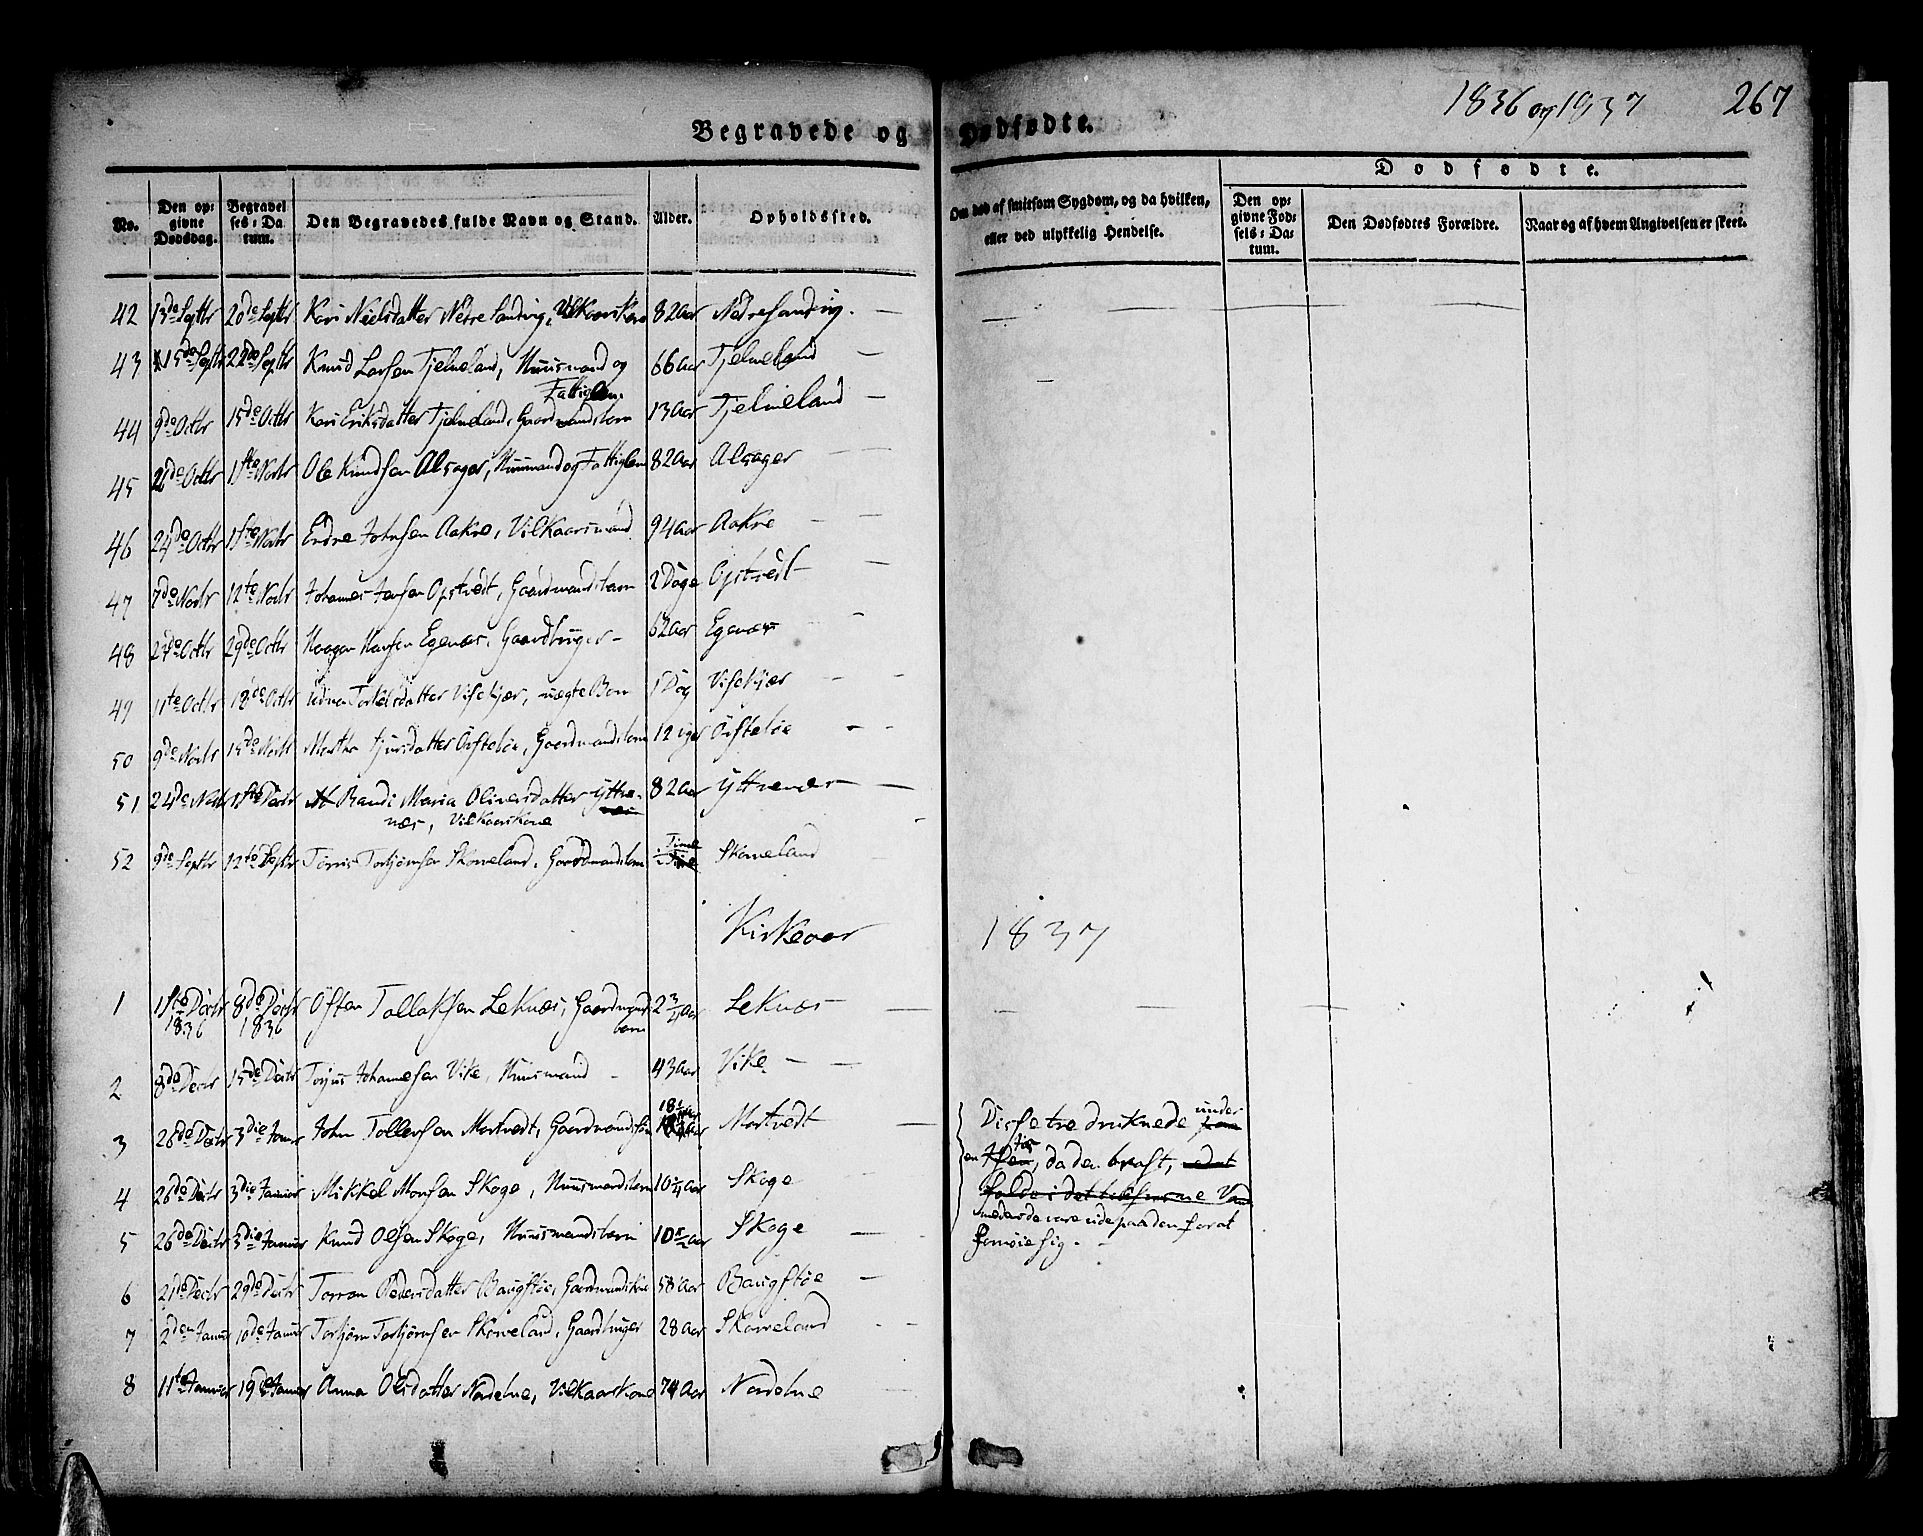 1836 og 1837 267
Begravede og Dødfødte.
Dødfødte.
No. Den opgivne Dødsdag. Begravelses-Datum. Den Begravedes fulde Navn og Stand. Alder. Opholdssted. Om død af smitsom Sygdom, og da hvilken, eller ved ulykkelig Hendelse. Den opgivne Fødsels-Datum. Den Dødfødtes Forældre. Naar og af hvem Angivelsen er skeet.
42 13de Septbr 20de Septbr Kari Nielsdatter Nedre Sandvig, Vilkaarskone 82 Aar Nedresandvig
43 15de Septbr 22de Septbr Knud Larsen Tjelmeland, Huusmand og 66 Aar Tjelmeland
Fattiglem.
44 9de Octbr 15de Octbr Kari Eriksdatter Tjelmeland, Gaardmandsbarn 13 Aar Tjelmeland
45 26de Octbr 1ste Novbr Ole Knudsen Alsager, Huusmand og Fattiglem 82 Aar Alsager
46 24de Octbr 1ste Novbr Endre Johnsen Aakre, Vilkaarsmand 94 Aar Aakre
47 7de Novbr 12te Novbr Johannes Jensen Opstvedt, Gaardmandsbarn 2 Dage Opstvedt
48 27de Octbr 29de Octbr Haagen Hansen Egenæs, Gaardbruger 62 Aar Egenæs
49 11te Octbr 18de Octbr Torkelsdatter uægte Barn 1 Dag
50 9de Novbr 15de Novbr Martha datter Gaardmandsbarn 12 Uger
51 24de Novbr 1ste Decbr Randi Maria Oliversdatter Yttre- 82 Aar Yttrenæs
næs, Vilkaarskone
52 9de Septbr 12te Septbr Tørris Torbjørnsen Skoveland, Gaardmandsbarn Time Skoveland
Kirkeaar 1837
1 1ste Decbr 8de Decbr Østen Tollaksen Leknæs, Gaardmands 2 3/4 Aar Leknæs
1836 1836 barn
2 8de Decbr 15de Decbr Johannesen Vike, Huusmand 43 Aar Vike
3 26de Decbr 3die Januar John Tollevsen Mortvedt, Gaardmandssøn Mortvedt
4 26de Decbr 3die Januar Mikkel Monsen Skoge, Huusmandsbarn 10 1/4 Aar Skoge
5 26de Decbr 3die Januar Knud Olsen Skoge, Huusmandsbarn 10 1/2 Aar Skoge
Disse tre druknede under
en Iis, da den brast,
medens de vare ude paa den for at
fornøie sig.
6 21de Decbr 29de Decbr Pedersdatter Baugstøe, Gaardmandskone 58 Aar Baugstøe
7 2den Januar 10de Januar Torbjørn Torbjørnsen Skoveland, Gaardbruger 28 Aar Skoveland
8 11te Januar 19de Januar Anna Olsdatter Nordelne, Vilkaarskone 74 Aar Nordelne